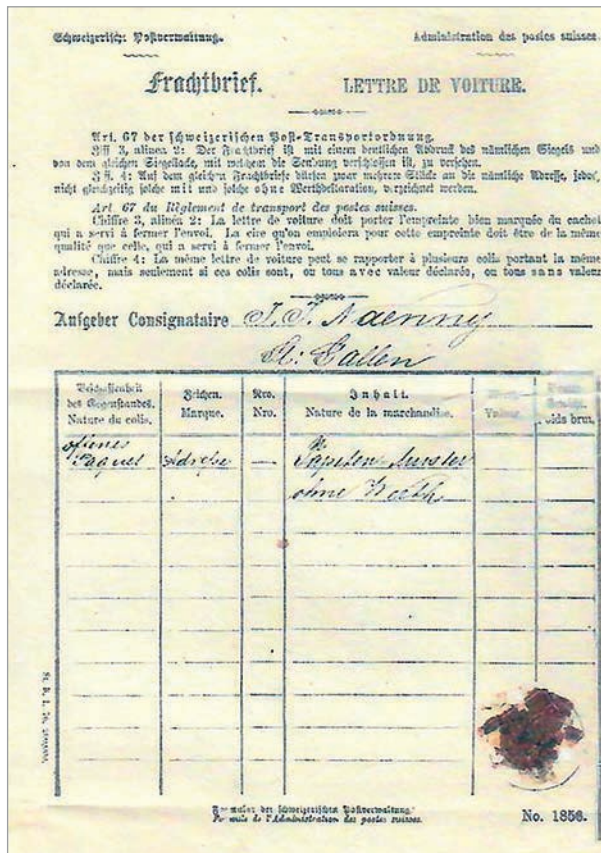 Schweizerische Postverwaltung.
Administration des postes suisses.
Frachtbrief.
LETTRE DE VOITURE.
Art. 67 der schweizerischen Post-Transportordnung.
Ziff 3, alinea 2: Der Frachtbrief ist mit einem deutlichen Abdruck des nämlichen Siegels und
von dem gleichen Siegellack, mit welchem die Sendung verschlossen ist, zu versehen.
Ziff. 4: Auf dem gleichen Frachtbriefe dürfen zwar mehrere Stücke an die nämliche Adresse, jedoch
nicht gleichzeitig solche mit und solche ohne Werthdeklaration, verzeichnet werden.
Art 67 du Règlement de transport des postes suisses.
Chiffre 3, alinéa 2: La lettre de voiture doit porter l'empreinte bien marquée du cachet
qui a servi à fermer l'envoi. La cire qu'on emploiera pour cette empreinte doit être de la même
qualité que celle, qui a servi à fermer l'envoi.
Chiffre 4: La même lettre de voiture peut se rapporter à plusieurs colis portant la même
adresse, mais seulement si ces colis sont, ou tous avec valeur déclarée, ou tous sans valeur
déclarée.
Aufgeber Consignataire J. J. Naenny
St: Gallen
Beschaffenheit des Gegenstandes. Nature du colis.
Zeichen. Marque.
Nro. Nro.
Inhalt. Nature de la marchandise.
Valeur.
oids brut.
offenes
Paquet Adresse — Tapeten Muster
ohne Werth
Formular der schweizerischen Postverwaltung.
Formule de l'Administration des postes suisses.
No. 1856.